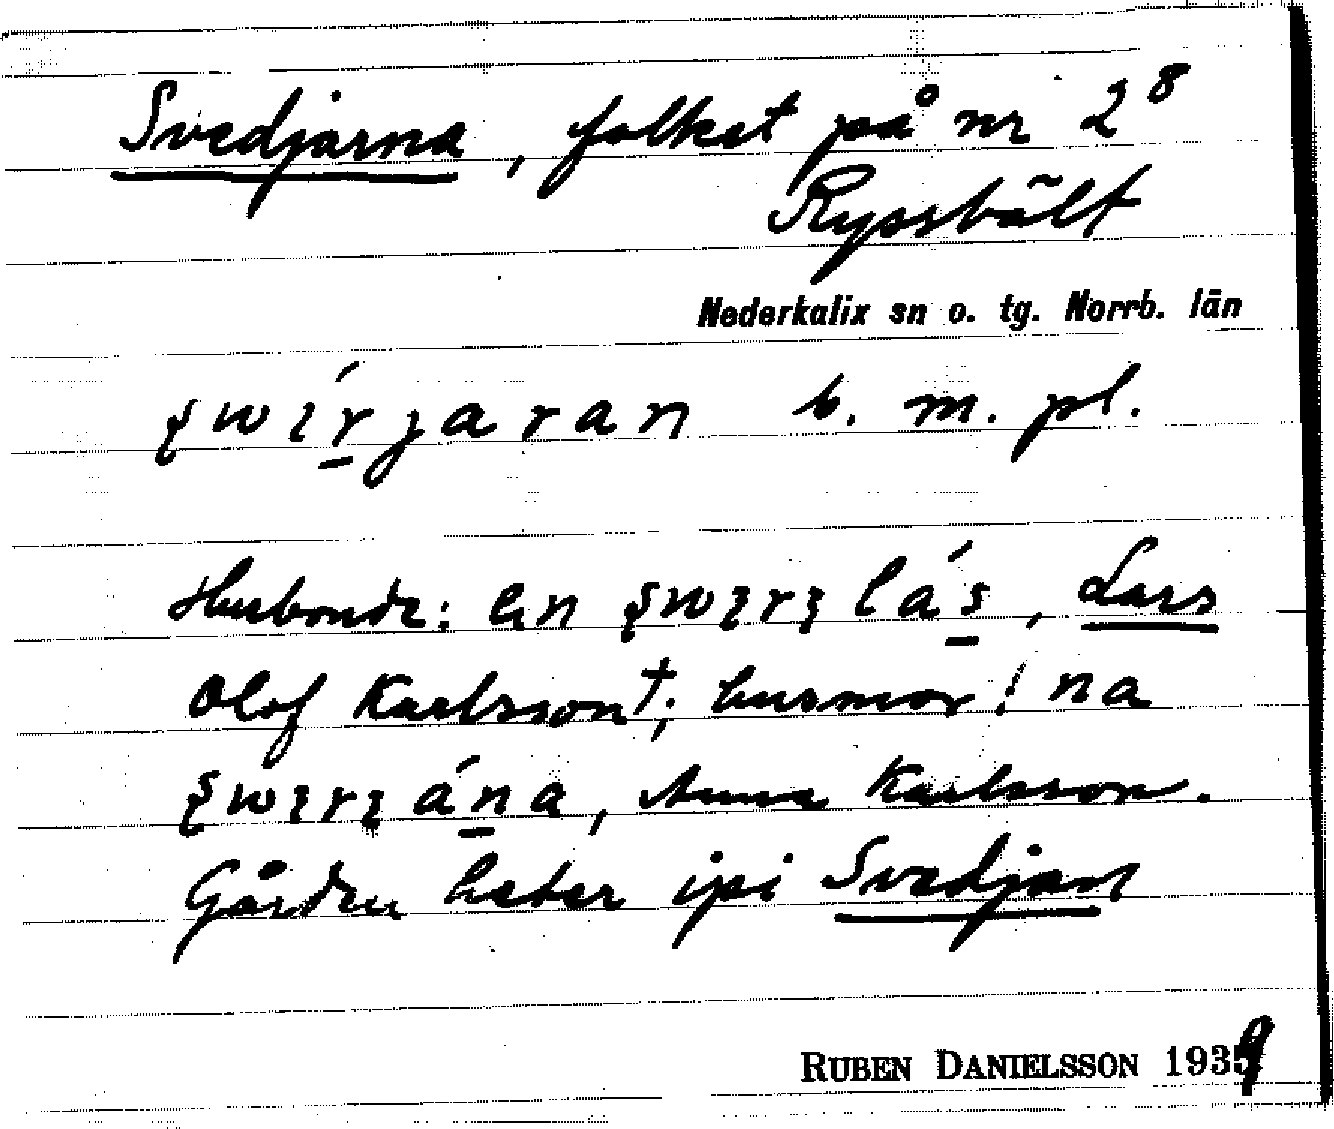 Svedjarna, folket på nr 2⁸
Ryssbält
Nederkalix sn o. tg. Norrb. län
b. m. pl.
Husbonde: Lars
Olof Karlsson†; husmor: na
Anna Karlsson.
Gården heter ipi Svedjan
RUBEN DANIELSSON 1939